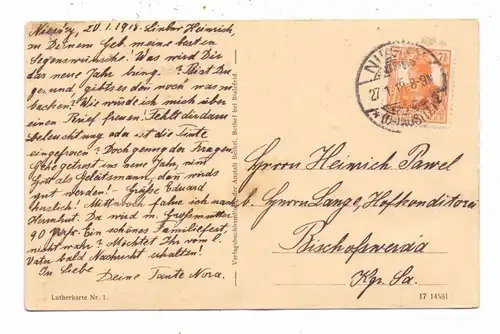 Niesky, 20.1.1918. Lieber Heinrich,
zu Deinem Geb. meine besten
Segenswünsche! Was wird Dir
das neue Jahr bring.? Bist Du
gesund, gibt es den noch was zu
backen? Wie würde ich mich über
einen Brief freuen. Fehlt dir dazu
beleuchtung oder ist die tinte
eingefroren? Doch genug der Fragen
Gehe getrost ins neue Jahr, nim
Gott als Geleitsmann, dann wirds
gut werden! – Grüße Eduard
herzlich! Mittwoch fahre ich nach
Herrnhut. Da wird m. Großmutter
90 Jahr. Ein schönes Familienfest,
nicht wahr? Möchtet Ihr vom l.
Vater bald Nachricht erhalten!
In Liebe
Deine Tante Nora.
Lutherkarte Nr. 1.
Verlagsbuchhandlung der Anstalt Bethel, Bethel bei Bielefeld.
27.1.
(O-LAUSITZ)
Herrn Heinrich Pawel
b. Herrn Lange, Hofkonditorei
Bischofswerda
Kgr. Sa.
17 14581